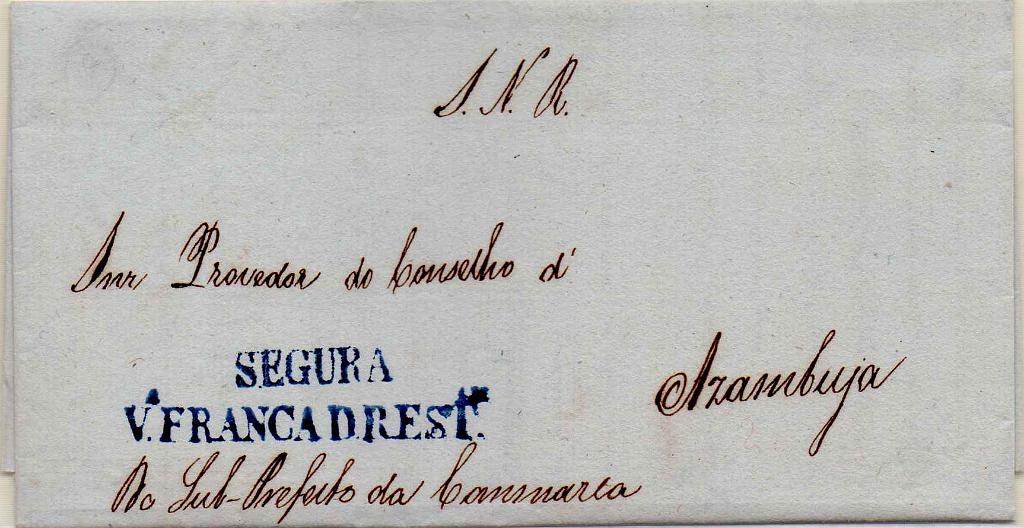 S. N. R.
Snr Provedor do Conselho d'
Azambuja
SEGURA
V.ª FRANCA D. REST.ª
Do Sub-Prefeito da Commarca